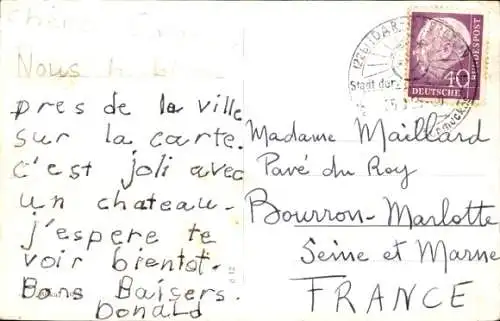 Chère
Nous
pres de la ville
sur la carte.
c'est joli avec
un chateau-
j'espere te
voir bientot.
Bons Baisers.
Donald
Stadt der
40
DEUTSCHE
BUNDESPOST
Madame Maillard
Pavé du Roy
Bourron-Marlotte
Seine et Marne
FRANCE